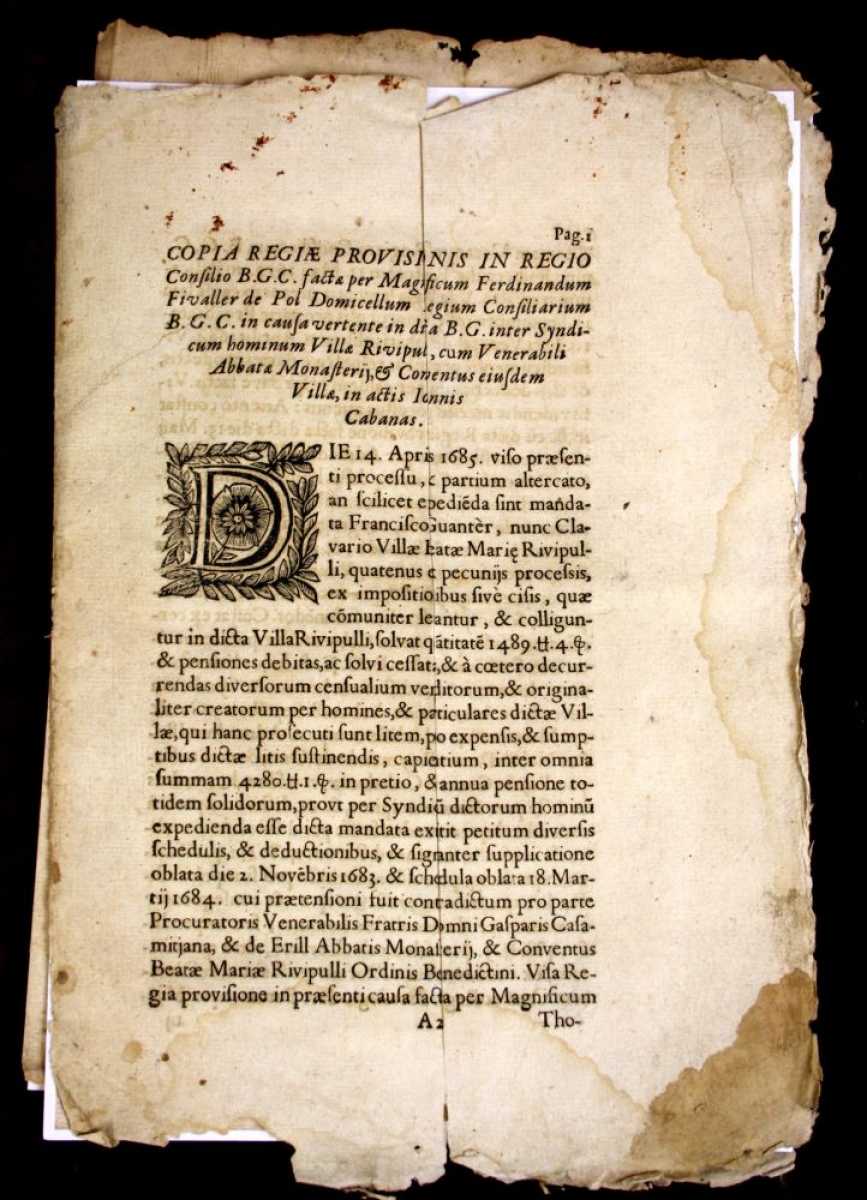 Pag.1
COPIA REGIÆ PROVISINIS IN REGIO
Consilio B.G.C. factæ per Magificum Ferdinandum
Fivaller de Pol Domicellum egium Consiliarium
B. G. C. in causa vertente in dia B.G. inter Syndi-
cum hominum Villæ Rivipul, cum Venerabili
Abbatæ Monasterij, & Conentus eiusdem
Villæ, in actis Ionnis
Cabanas.
DIE 14. Apris 1685. viso præsen-
ti processu, & partium altercato,
an scilicet epediēda sint man̄da-
ta Francisco uantèr, nunc Cla-
vario Villæ eatæ Marię Rivipul-
li, quatenus e pecunijs processis,
ex impositioibus sivè cisis, quæ
cōmuniter leantur, & colligun-
tur in dicta Villa Rivipulli, solvat qātitatē 1489.
& pensiones debitas, ac solvi cessati, & à cœtero decur-
rendas diversorum censualium veditorum, & origina-
liter creatorum per homines, & paticulares dictæ Vil-
læ, qui hanc prosecuti sunt litem, po expensis, & sump-
tibus dictæ litis sustinendis, capientium, inter omnia
summam 4280. in pretio, & annua pensione to-
tidem solidorum, provt per Syndiū dictorum hominū
expedienda esse dicta mandata exitit petitum diversis
schedulis, & deductionibus, & siganter supplicatione
oblata die 2. Novēbris 1683. & schedula oblata 18. Mar-
tij 1684. cui prætensioni fuit contradictum pro parte
Procuratoris Venerabilis Fratris Domni Gasparis Casa-
mitjana, & de Erill Abbatis Monasterij, & Conventus
Beatæ Mariæ Rivipulli Ordinis Benedictini. Visa Re-
gia provisione in præsenti causa facta per Magnificum
A2 Tho-